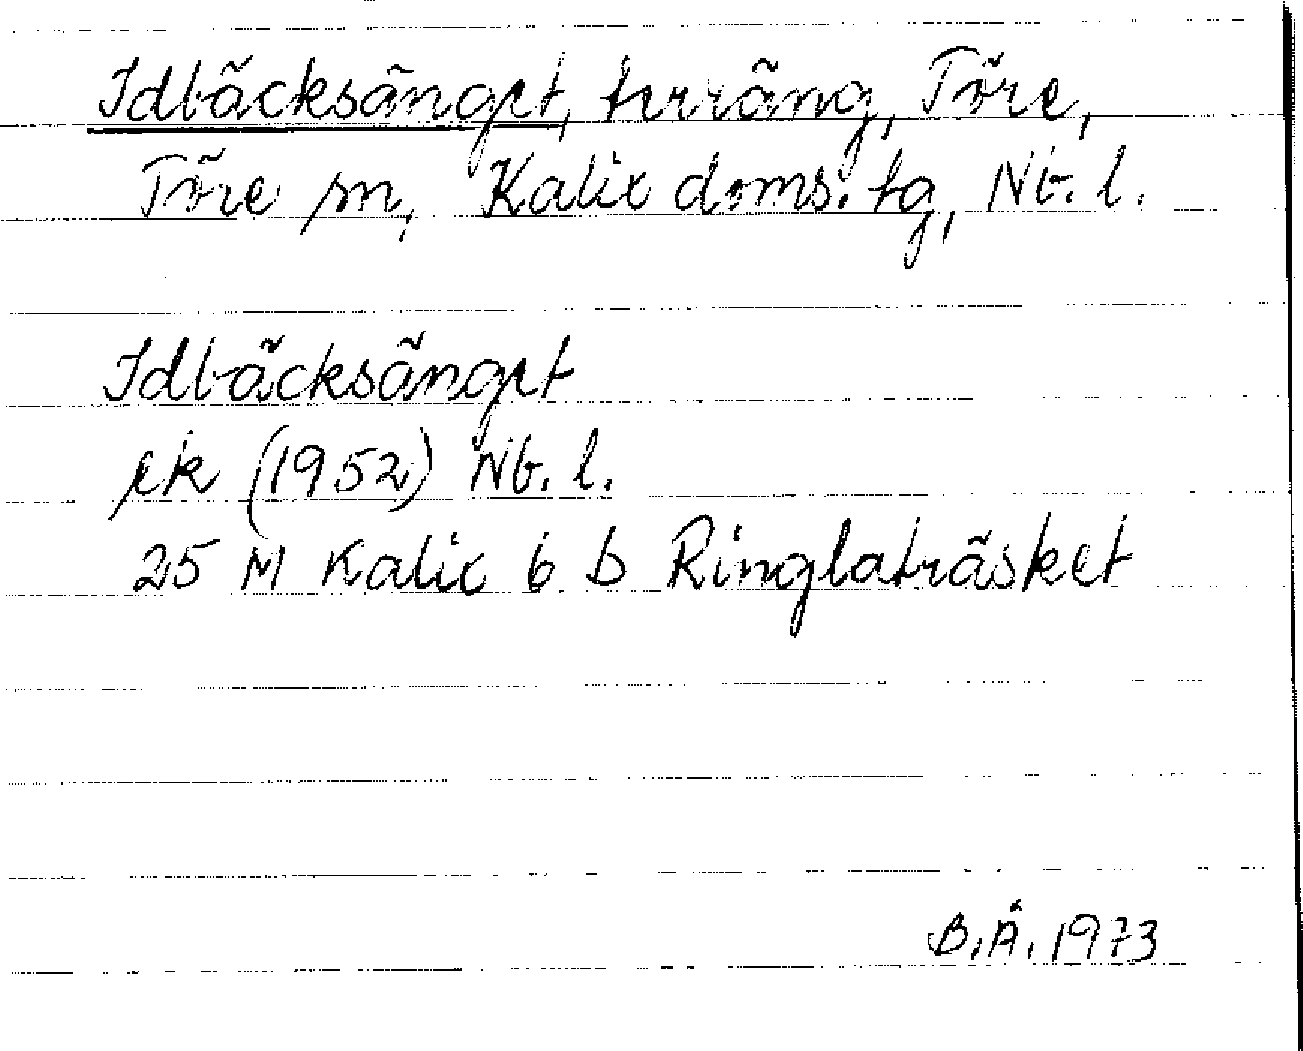 Idbäcksänget, terräng, Töre,
Töre sn, Kalix doms. tg, Nb. l.
Idbäcksänget
ek (1952) Nb. l.
25 M Kalix 6 b Ringlaträsket
B.Å. 1973